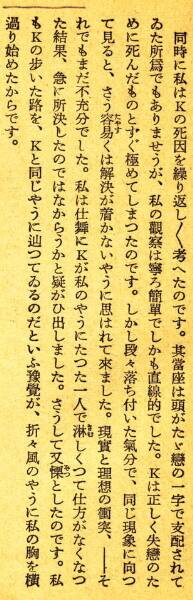 同時に私はKの死因を繰り返し〳〵考へたのです。其當座は頭がたゞ戀の一字で支配されて
ゐた所爲でもありませうが、私の觀察は寧ろ簡單でしかも直線的でした。Kは正しく失戀のた
めに死んだものとすぐ極めてしまつたのです。しかし段々落ち付いた氣分で、同じ現象に向つ
て見ると、さう容易くは解決が着かないやうに思はれて來ました。現實と理想の衝突、――そ
れでもまだ不充分でした。私は仕舞にKが私のやうにたつた一人で淋しくつて仕方がなくなつ
た結果、急に所決したのではなからうかと疑がひ出しました。さうして又慄としたのです。私
もKの歩いた路を、Kと同じやうに辿つてゐるのだといふ豫覺が、折々風のやうに私の胸を橫
過り始めたからです。